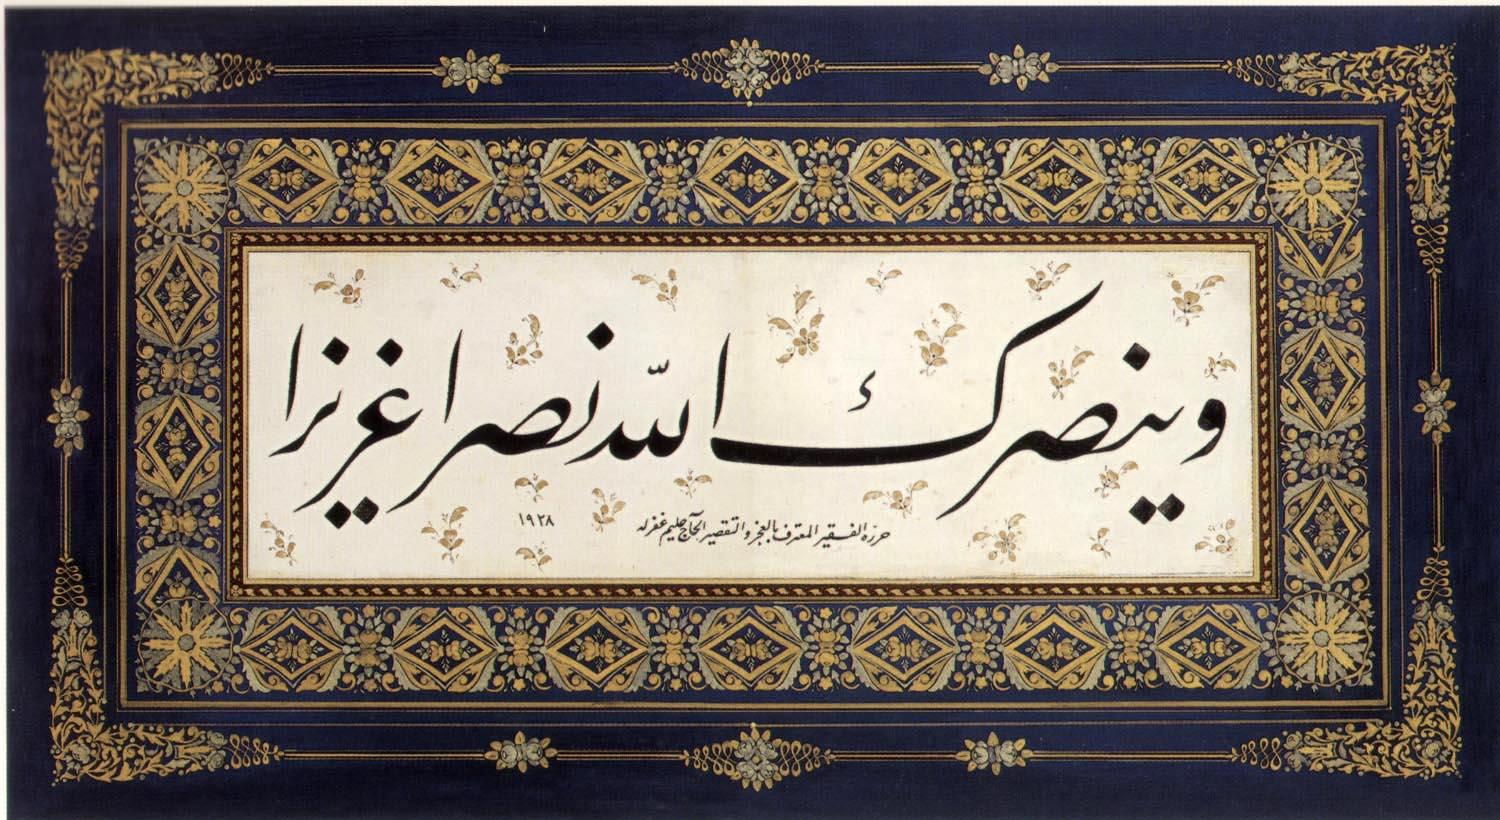 وينصرك الله نصرا عزيزا
حرره الفقير المعترف بالعجز والتقصير الحاج حليم غفرله
١٩٣٨